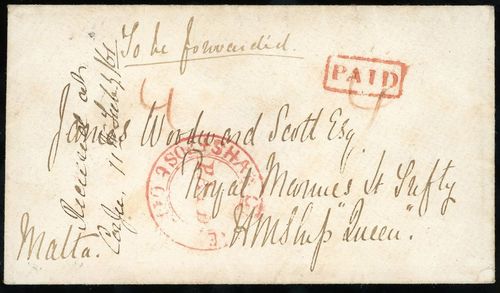 To be forwarded.
PAID
James Woodward Scott Esq
Royal Marines Lt Infty
HMShip "Queen".
Malta.
Received at
Corfu. 11th July/61